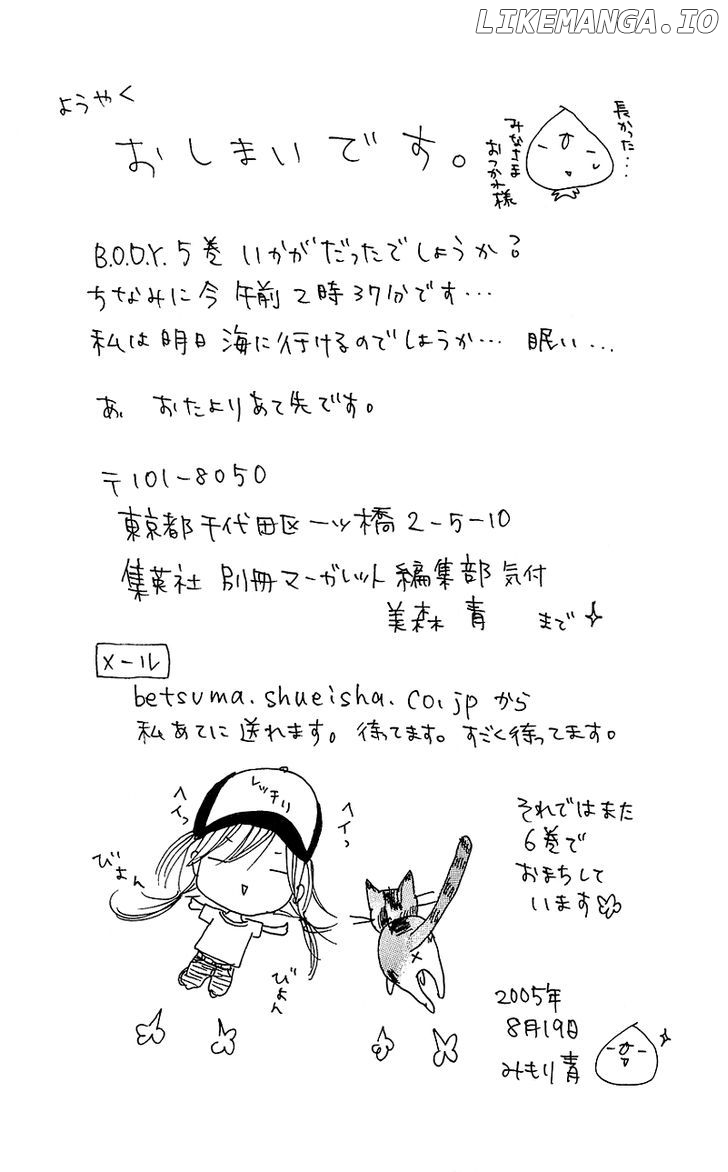 LIKEMANGA.IO
ようやく
おしまいです。
長かった…
みなさま
おつかれ様
B.O.D.Y. 5巻 いかがだったでしょうか?
ちなみに今 午前2時37分です…
私は明日 海に行けるのでしょうか… 眠い…
あ、 おたよりあて先です。
〒101-8050
東京都千代田区一ツ橋2-5-10
集英社 別冊マーガレット編集部気付
美森 青 まで
メール
betsuma.shueisha.co.jp から
私あてに送れます。待ってます。すごく待ってます。
レッキリ
ヘイっ
ヘイっ
びよん
びよん
それではまた
6巻で
おまちして
います
2005年
8月19日
みもり青